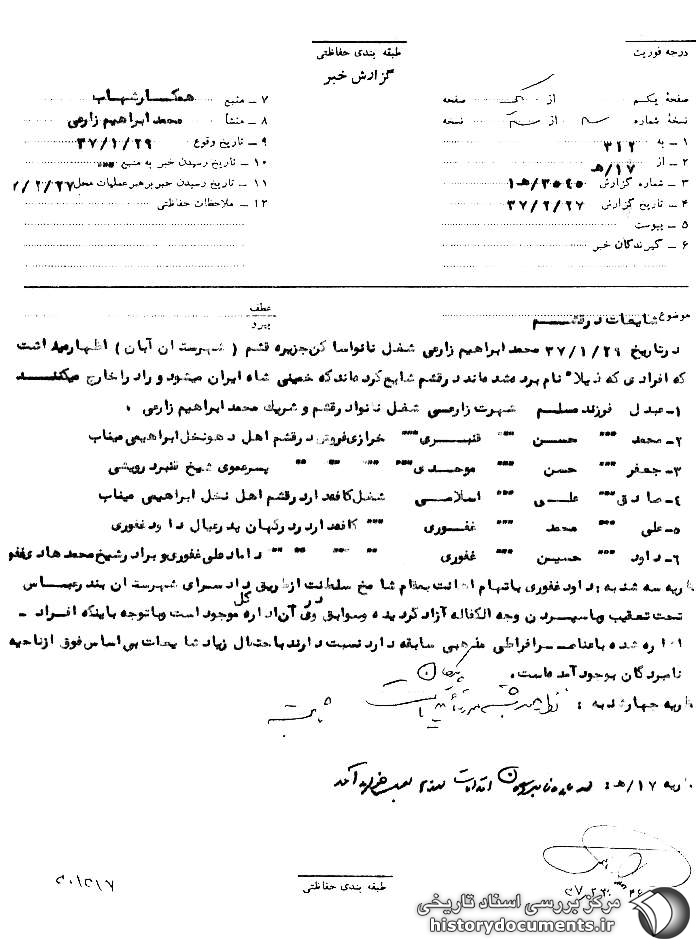 درجه فوریت
طبقه بندی حفاظتی
گزارش خبر
صفحهٔ یکم از یک صفحه
نسخهٔ شماره سه از سه نسخه
۱ - به ۳۱۲
۲ - از ۱۷/ه‍
۳ - شماره گزارش ۳۵۴۵/ه‍۱
۴ - تاریخ گزارش ۳۷/۲/۲۷
۵ - پیوست
۶ - گیرندگان خبر
۷ - منبع همکار شهاب
۸ - منشأ محمد ابراهیم زارعی
۹ - تاریخ وقوع ۳۷/۱/۲۹
۱۰ - تاریخ رسیدن خبر به منبع ""
۱۱ - تاریخ رسیدن خبر برهبر عملیات محل ۲/۲/۲۷
۱۲ - ملاحظات حفاظتی
موضوع شایعات در قشم
عطف
پیرو
در تاریخ ۳۷/۱/۲۹ محمد ابراهیم زارعی شغل نانوا ساکن جزیره قشم ( شهرستان آبان ) اظهار میداشت
که افرادی که ذیلا" نام برده شده اند در قشم شایع کرده اند که خمینی شاه ایران میشود و راد را خارج میکنند
۱- عبدل فرزند مسلم شهرت زارعی شغل نانوا در قشم و شریک محمد ابراهیم زارعی .
۲- محمد "" حسن "" قنبری "" خرازی فروش در قشم اهل دهونخل ابراهیمی میناب
۳- جعفر "" حسن "" موحدی "" "" "" "" پسر عموی شیخ قنبر درویشی
۴- صادق "" علی "" اسلامی شغل کافه دار در قشم اهل نخل ابراهیمی میناب
۵- علی "" محمد "" غفوری "" کافه دار در درکهان پدر عیال داود غفوری
۶- داود "" حسین "" غفوری "" "" "" داماد علی غفوری و برادر شیخ محمد هادی غفو
نظریه سه شنبه : داود غفوری باتهام اهانت بمقام شامخ سلطنت از طریق دادسرای شهرستان بندرعباس
تحت تعقیب و با سپردن وجه الکفاله آزاد گردیده و سوابق وی در آن اداره کل موجود است و با توجه باینکه افراد -
اشاره شده با عناصر افراطی مذهبی سابقه دار دارند با احتمال زیاد شایعات بی اساس فوق از ناحیه
نامبردگان بوجود آمده است .
نظریه چهارشنبه : نظریه سه شنبه مورد تأیید است
شنبه
نظریه ۱۷/ه‍ :
طبقه بندی حفاظتی
۲۰۱۲۱۷
مرکز بررسی اسناد تاریخی
historydocuments.ir